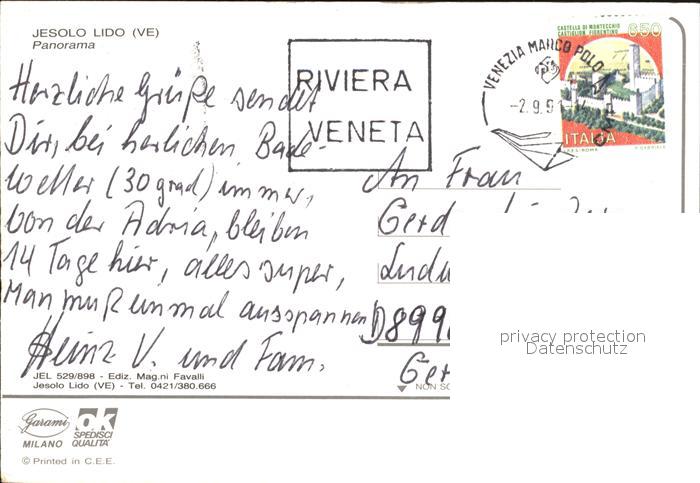 JESOLO LIDO (VE)
Panorama
Herzliche Grüße sendet
Dir, bei herlichen Bade-
wetter (30 grad) immer,
von der Adria, bleiben
14 Tage hier, alles super,
Man muß einmal ausspannen
Heinz V. und Fam.
JEL 529/898 - Ediz. Mag.ni Favalli
Jesolo Lido (VE) - Tel. 0421/380.666
Garami
MILANO
ok
SPEDISCI
QUALITA'
© Printed in C.E.E.
RIVIERA
VENETA
VENEZIA MARCO POLO
-2.9.91-14
CASTELLO DI MONTECCHIO
CASTIGLION FIORENTINO
650
ITALIA
I.P.Z.S. ROMA
An Frau
Gerd
Ludw
D 899
Ger
NON SC
privacy protection
Datenschutz